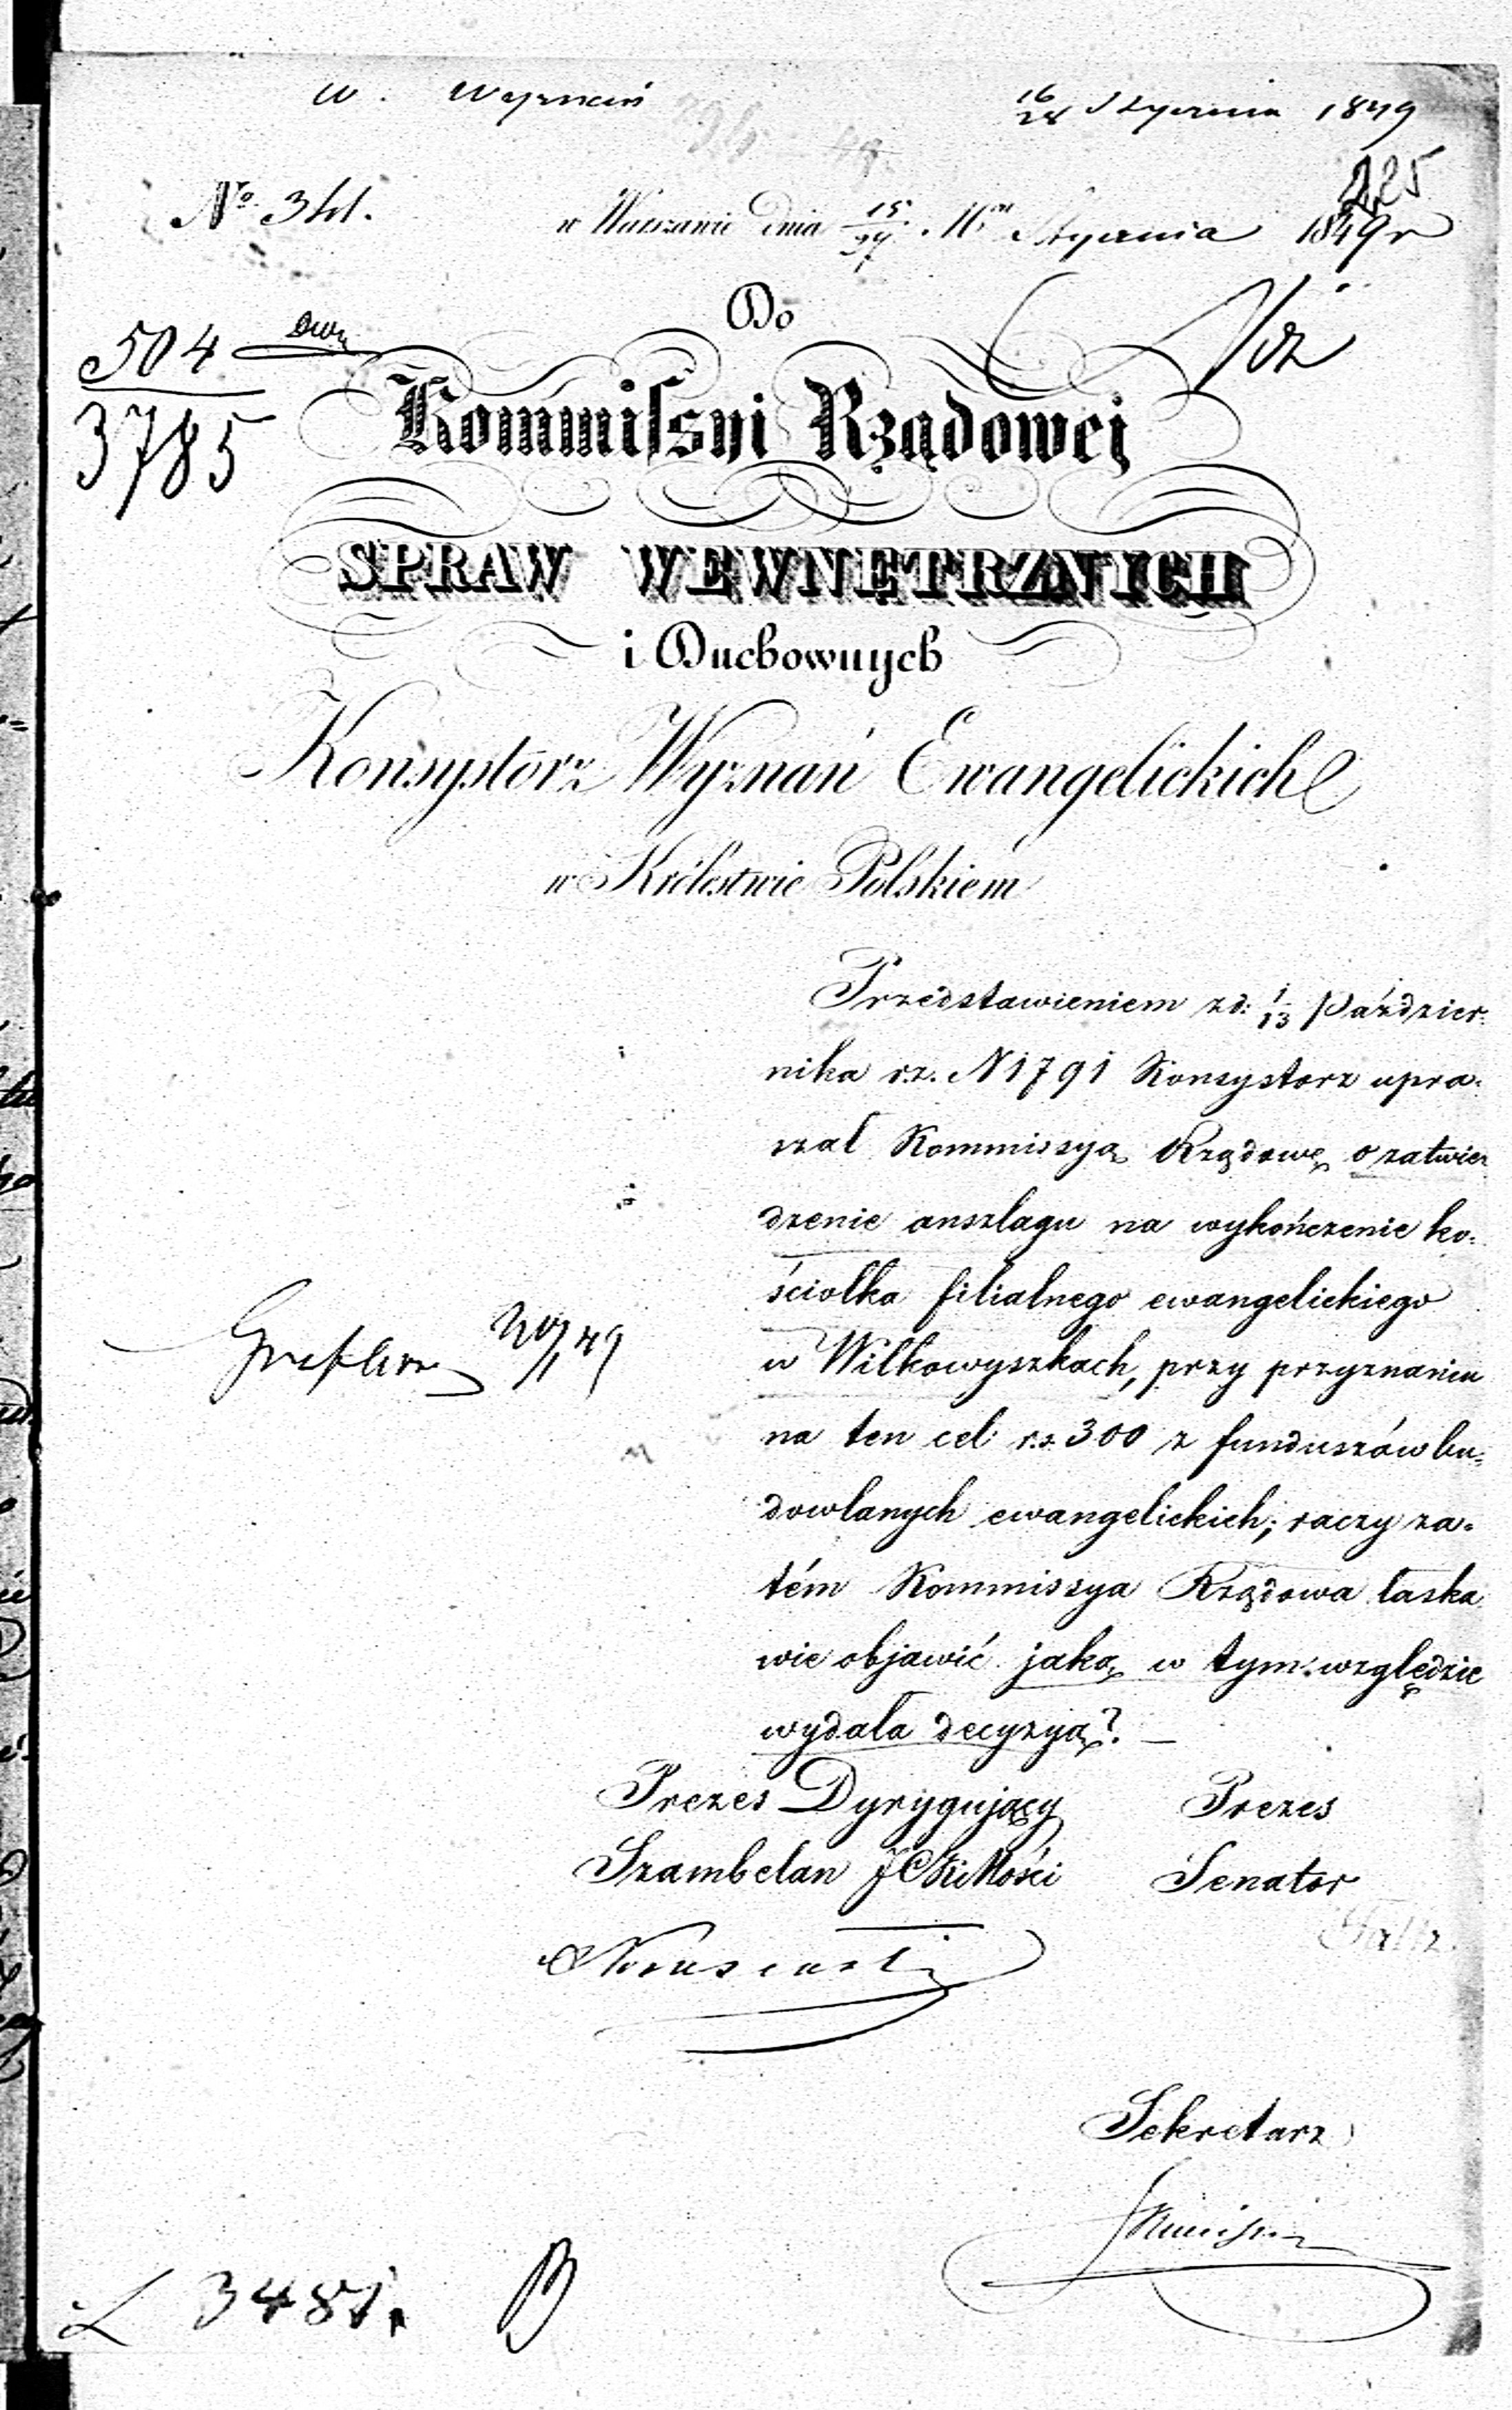 W. Wyznań 16/28 Stycznia 1849
225
No 341. w Warszawie dnia 15/27 Mca Stycznia 1849 r
Do
504
3785
Kommissyi Rządowej
SPRAW WEWNĘTRZNYCH
i Duchownych
Konsystorz Wyznań Ewangelickich
w Królestwie Polskiem
Przedstawieniem z d: 1/13 Paździer:
nika r.z. N 1791 Konsystorz upra:
szał Kommissyą Rządową o zatwier
dzenie anszlagu na wykończenie ko:
ściołka filialnego ewangelickiego
w Wilkowyszkach, przy przyznaniu
na ten cel r.s. 300 z funduszów bu:
dowlanych ewangelickich; raczy za:
tém Kommissya Rządowa łaska
wie objawić jaką w tym względzie
wydała decyzyą? —
Prezes Dyrygujący Prezes
Szambelan JCKiMości Senator
Sekretarz
L 3481.